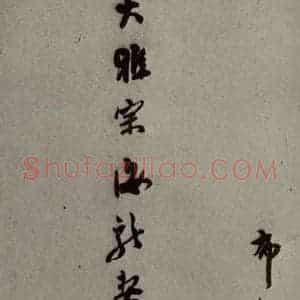 大雅宗海龙老
布
Shufaziliao.COM